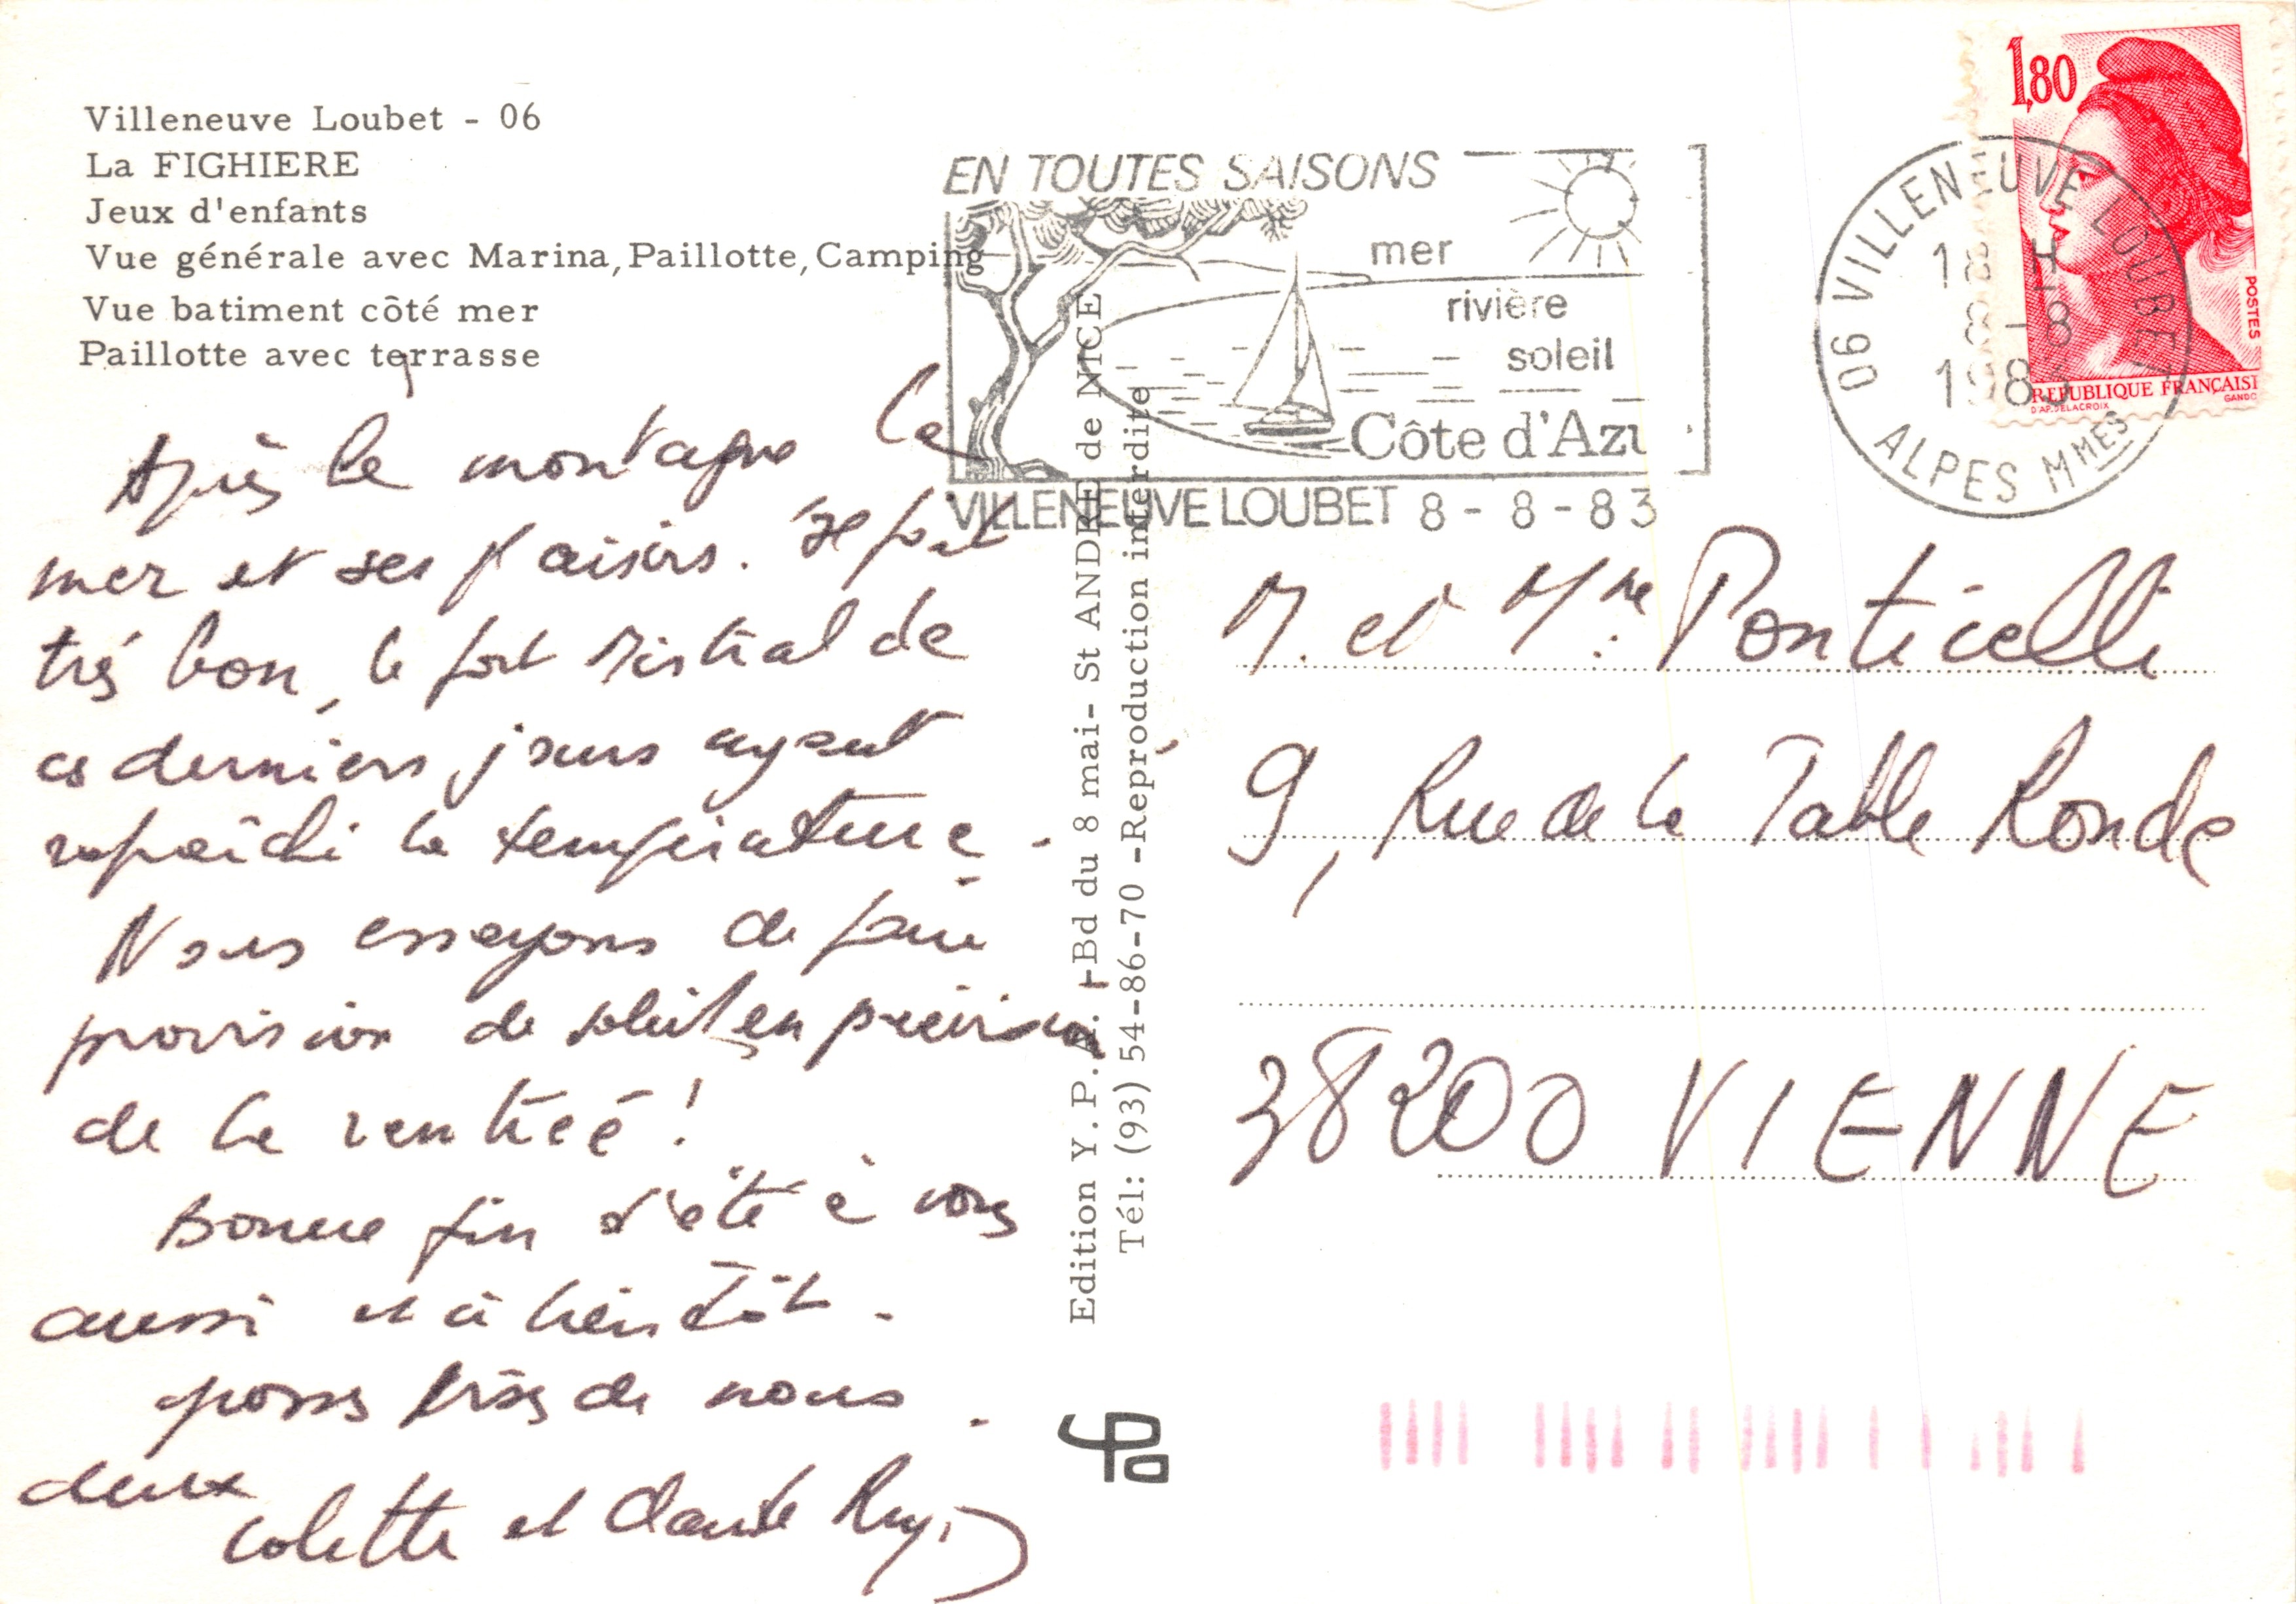 Villeneuve Loubet - 06
La FIGHIERE
Jeux d'enfants
Vue générale avec Marina, Paillotte, Camping
Vue batiment côté mer
Paillotte avec terrasse
Après la montagne la
mer et ses plaisirs. Il fait
très bon, le fort Mistral de
ces derniers jours ayant
rafraîchi la température.
Nous essayons de faire
provision de soleil en prévision
de la rentrée !
Bonne fin d'été à vous
aussi et à bientôt.
grosses bises de nous
deux
Colette et Claude
Edition Y.P.A. 1 Bd du 8 mai - St ANDRE de NICE
Tél: (93) 54-86-70 - Reproduction interdite
EN TOUTES SAISONS
mer
rivière
soleil
Côte d'Azu
VILLENEUVE LOUBET 8 - 8 - 83
1,80
POSTES
REPUBLIQUE FRANÇAISE
D'AP. DELACROIX
GANDON
06 VILLENEUVE LOUBET
18 H
8-8
1983
ALPES MMES
M. et Mme Ponticelli
9, Rue de la Table Ronde
38200 VIENNE